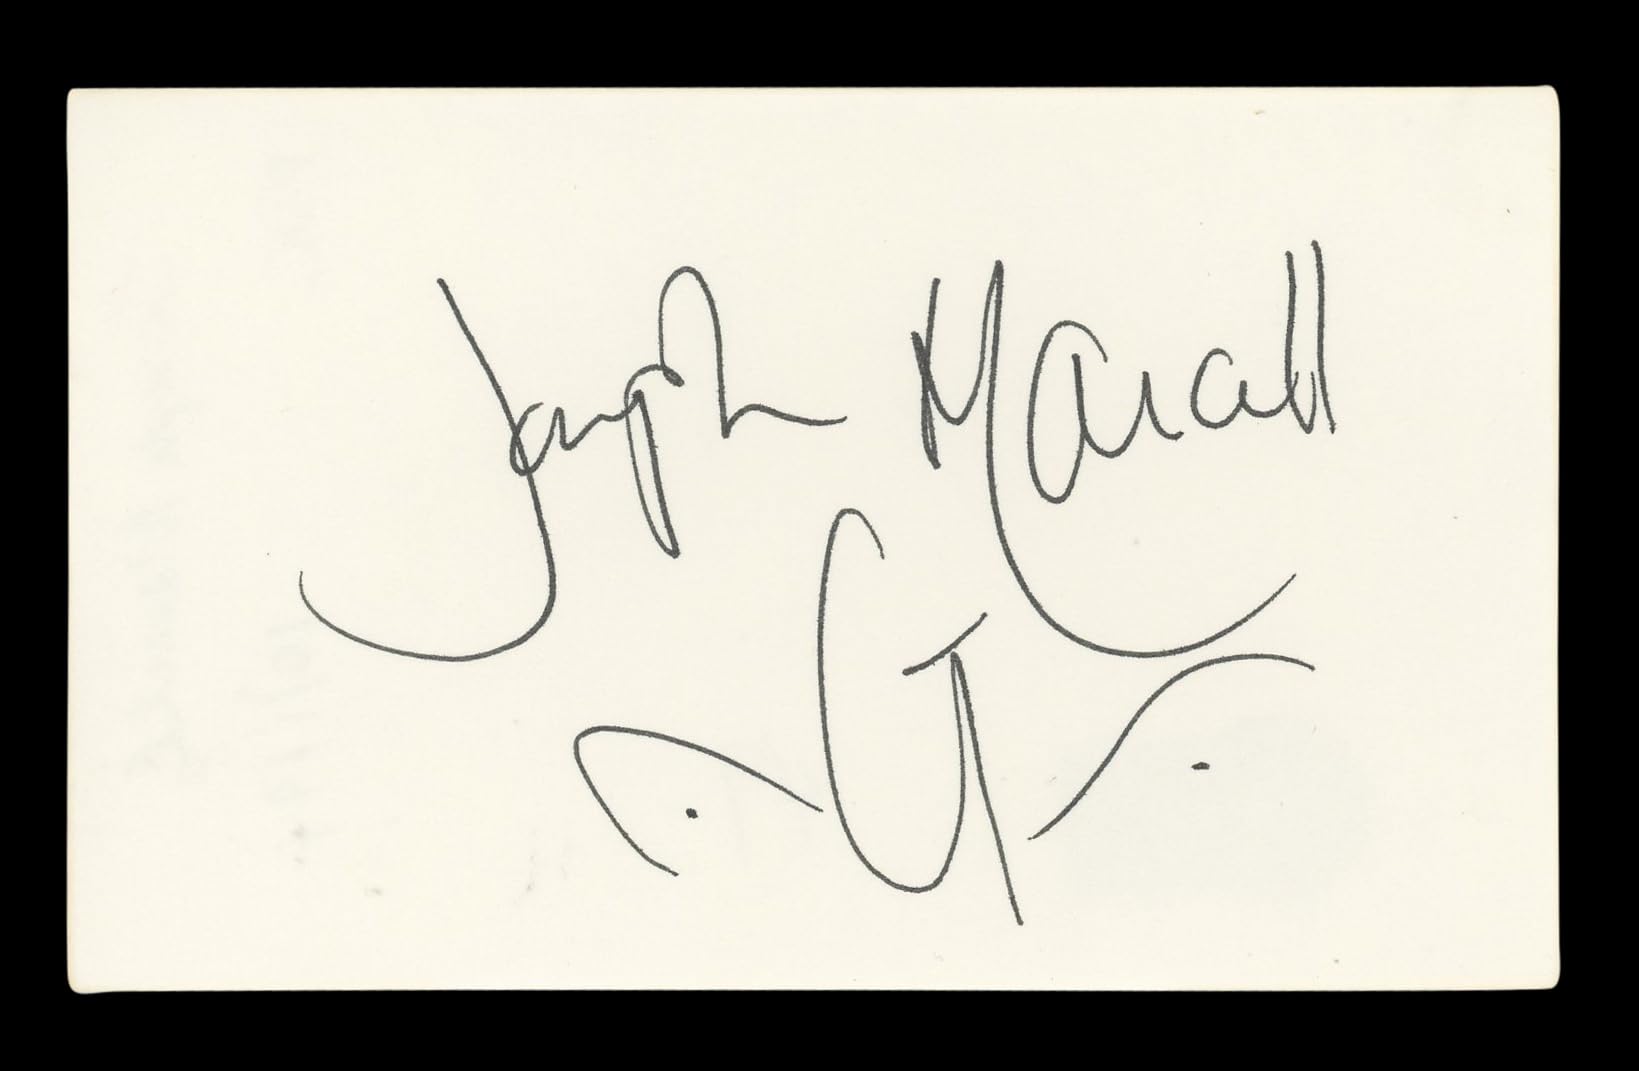 Joseph Marcell
G